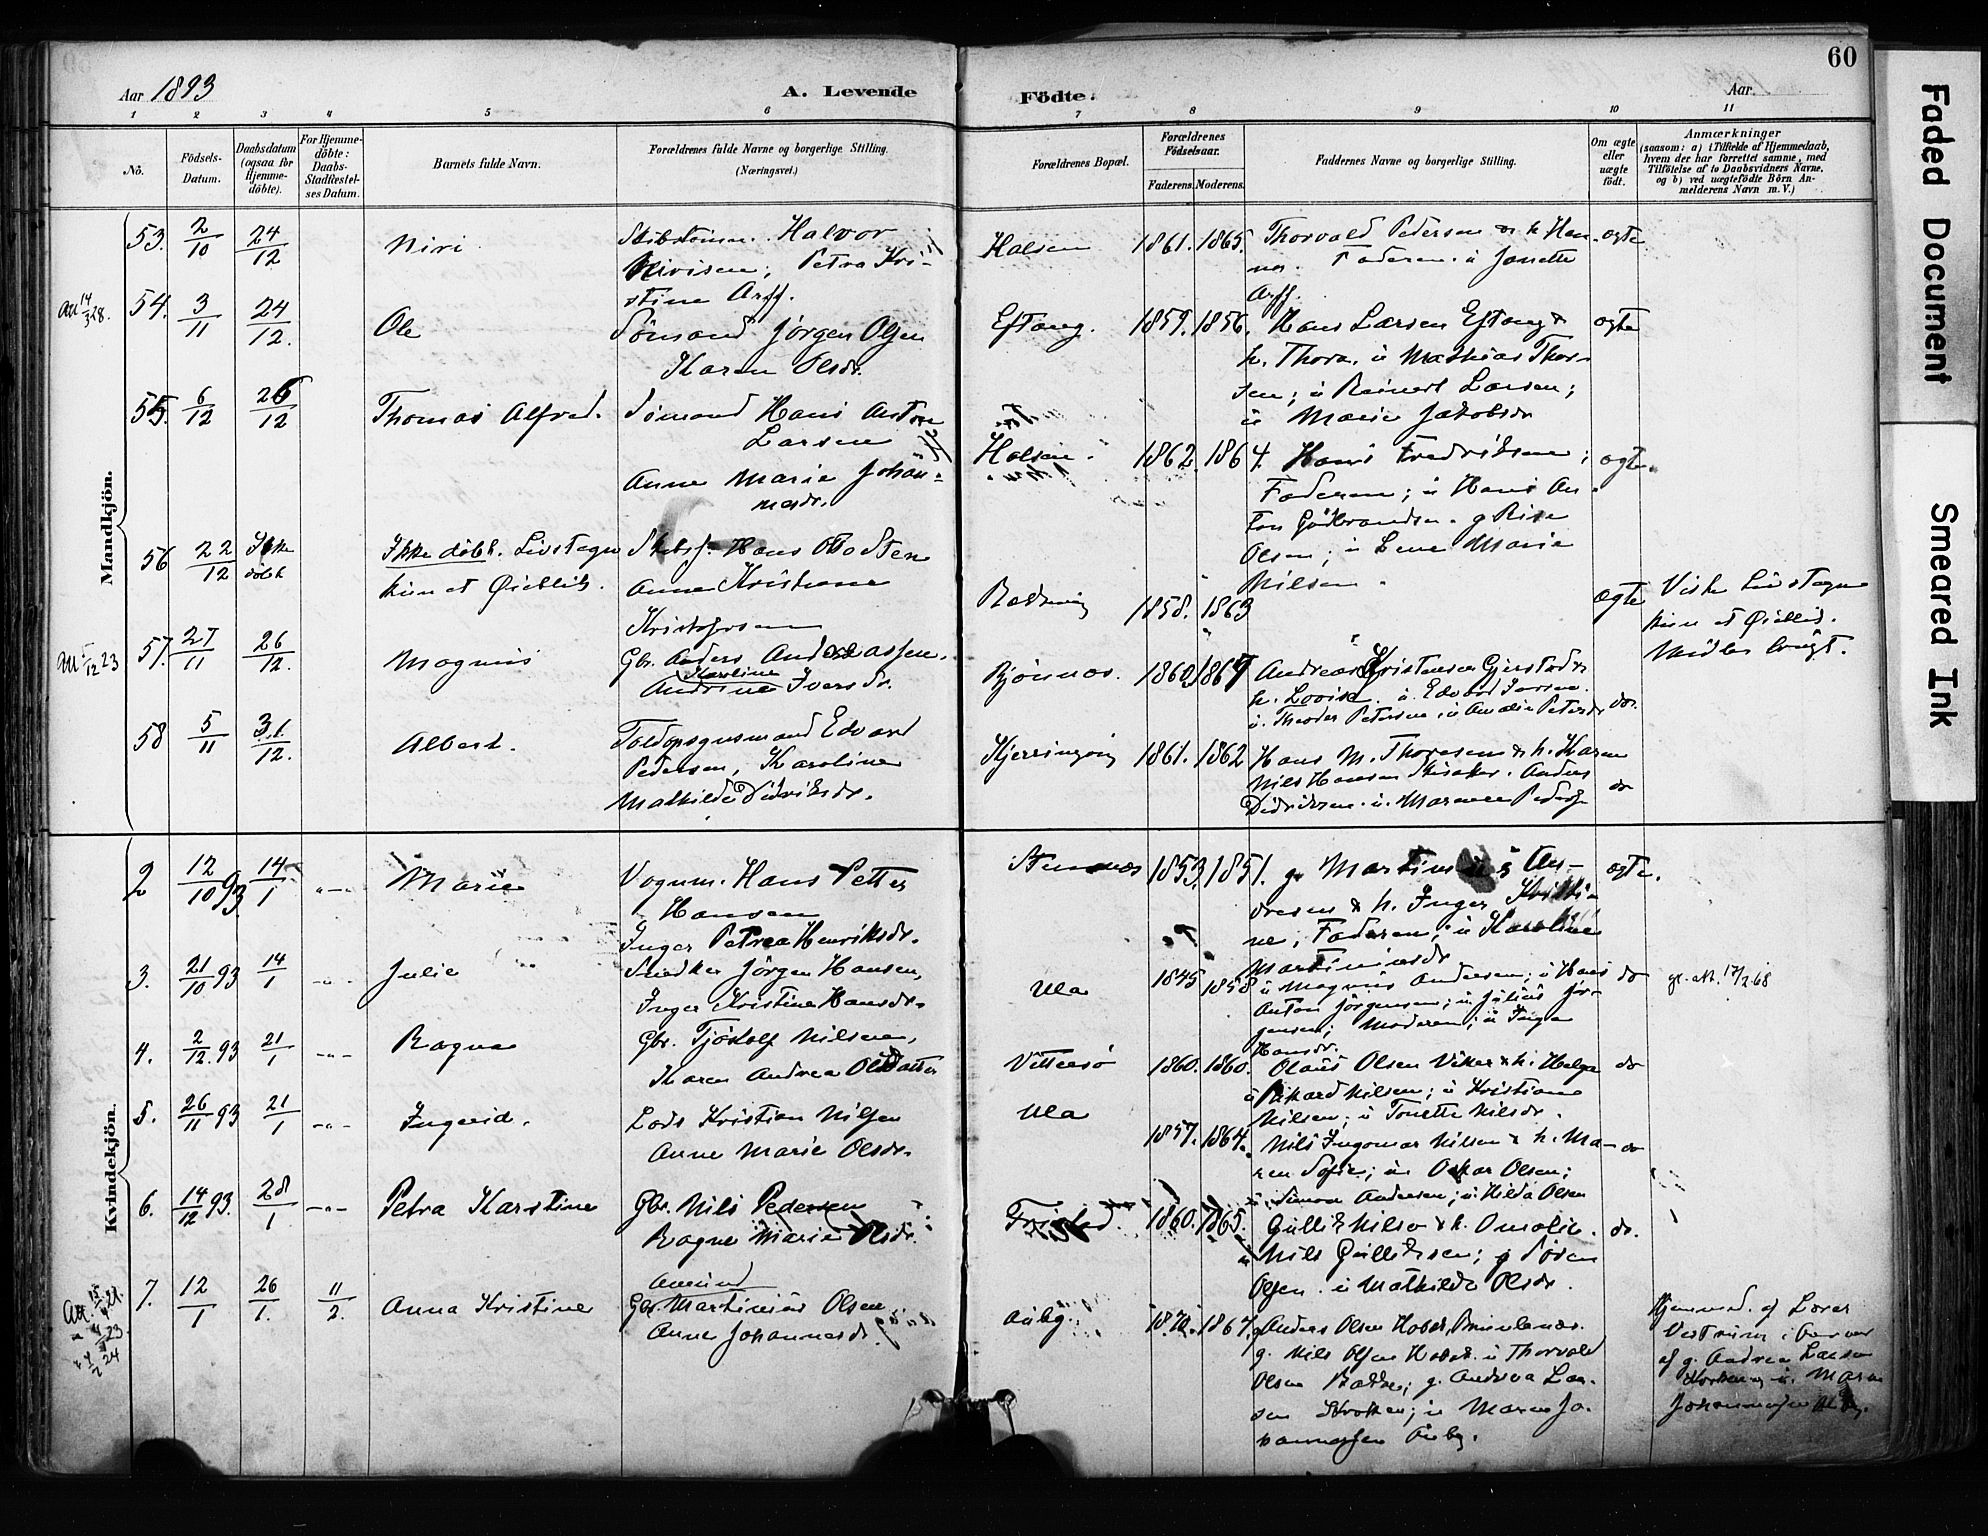 60
Aar 1893
A. Levende
Födte.
Aar
1 2 3 4 5 6 7 8 9 10 11
No.
Födsels-Datum.
Daabsdatum (ogsaa for Hjemme-döbte).
For Hjemme-döbte: Daabs-Stadfestel-ses Datum.
Barnets fulde Navn.
Forældrenes fulde Navne og borgerlige Stilling. (Næringsvei.)
Forældrenes Bopæl.
Forældrenes Födselsaar.
Faderens. Moderens.
Faddernes Navne og borgerlige Stilling.
Om ægte eller uægte födt.
Anmærkninger
(saasom: a) i Tilfælde af Hjemmedaab, hvem der har forrettet samme, med Tilföielse af to Daabsvidners Navne, og b) ved uægtefödte Börn An-melderens Navn m. V.)
Mandkjön.
53. 2/10 24/12 Niri
Halvor
Nirisen; Petra Kri-
stine Arff.
Halsen 1861. 1865.
Thorvald Pedersen & h. Han-
na. Faderen. u Janette
Arff.
ægte
54. 3/11 24/12. Ole
Sömand Jörgen Olsen
Karen Olsdr.
Eftang. 1859. 1856.
Hans Larsen Eftang &
h. Thora. u Mathias Thor-
sen; u Reinert Larsen;
u Marie Jakobsdr
ægte
55. 6/12 26/12 Thomas Alfred.
Sömand Hans Anton
Larsen
Anne Marie Johan-
nesdr.
Halsen. 1862. 1864.
Hans Fredriksen;
Faderen; u Hans An-
ton Gulbrandsen. g
Olsen; u Lene Marie
Nilsen.
ægte
56 22/12 Ikke döbt
Ikke döbt. Livstegn
kun et Öieblik.
Skibsf. Hans Otto Sten
Anne Kristiane
Kristofersen
1858. 1863
ægte
Livstegn
kun et Öieblik.
57. 27/11 26/12. Magnus
Gbr. Anders Andreassen.
Karoline
Andrine Iversdr.
Bjönnes. 1860. 1867
Andreas Kristensen Gjerstad &
h. Lovise. u. Edvard Iversen.
u. Theodor Petersen; u Amalie Petersdr
do.
58 5/11 31/12. Albert.
Toldopsynsmand Edvard
Pedersen, Karoline
Mathilde Didriksdr.
Kjerringvig 1861. 1862
Hans M. Thoresen & h. Karen
Nils Hansen. Anders
Didriksen. u. Marence Peders
do
Kvindekjön.
2 12/10 93. 14/1 -"- Marie
Vognm. Hans Petter
Hansen
Inger Petrea Henriksdr.
1853. 1851.
g. Martinius An-
dresen & h. Inger Kristi-
ne; Faderen; u Karoline
Martinusdr
ægte.
3. 21/10 93 14/1 -"- Julie
Snedker Jörgen Hansen,
Inger Kristine Hansdr.
Ula 1845 1858
u Magnus Andersen; u Hans
Anton Jörgensen; u Julius Jör-
gensen; Moderen; u Inga
Hansdr.
do
4. 2/12 93 21/1 -"- Ragna
Gbr. Tjöstolf Nilsen,
Karen Andrea Olsdatter
Vittersö 1860. 1860.
Olaus Olsen Viker & h. Helga
u Rikard Nilsen; u Kristian
Nilsen; u Tonette Nilsdr.
do
5. 26/11 93 21/1 -"- Ingeid.
Lods Kristian Nilsen
Anne Marie Olsdr.
Ula 1857. 1864.
Nils Ingomar Nilsen & h. Ma-
ren Sofie; u Oskar Olsen;
u. Simon Andersen; u. Hilda Olsen
do
6. 14/12 93. 28/1 -"- Petra Karstine
Gbr. Nils Pedersen
Ragne Marie Olsdr.
1860. 1865.
Gullik Nilsen & h. Amalie.
u Nils Gulliksen; g Sören
Olsen. u Mathilde Olsdr.
do.
7. 12/1 26/1. 11/2. Anna Kristine
Amund
Gbr. Martinius Olsen
Anne Johannesdr.
Auby. 1870. 1867.
Anders Olsen
g. Nils Olsen u Thorvald
Olsen; g. Andrea Lar-
sen; u Maren Jo-
hannessen Auby.
Hjemmed. af
af g. Andrea Larsen
u. Maren
Johannessen
Faded Document
Smeared Ink